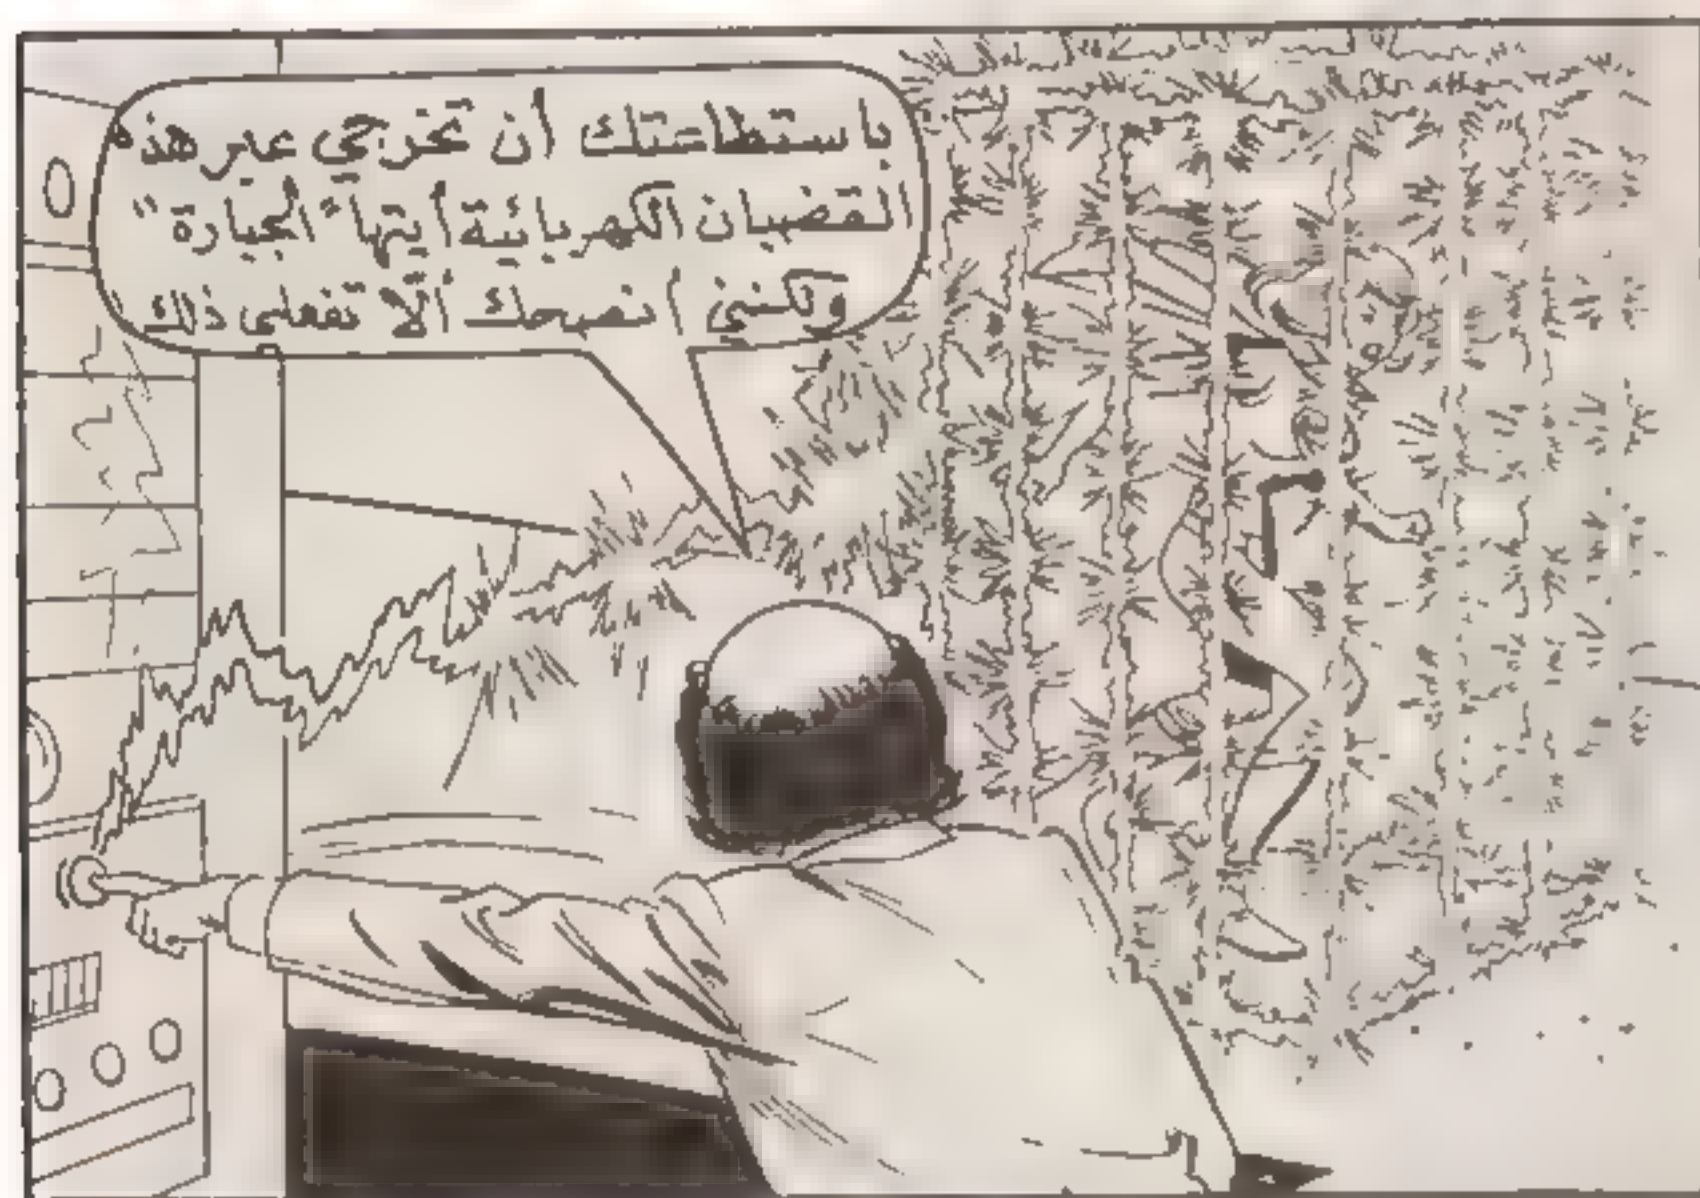 باستطاعتك أن تخرجي عبر هذه
القضبان الكهربائية أيتها "الجبارة"
ولكنني أنصحك ألّا تفعلي ذلك